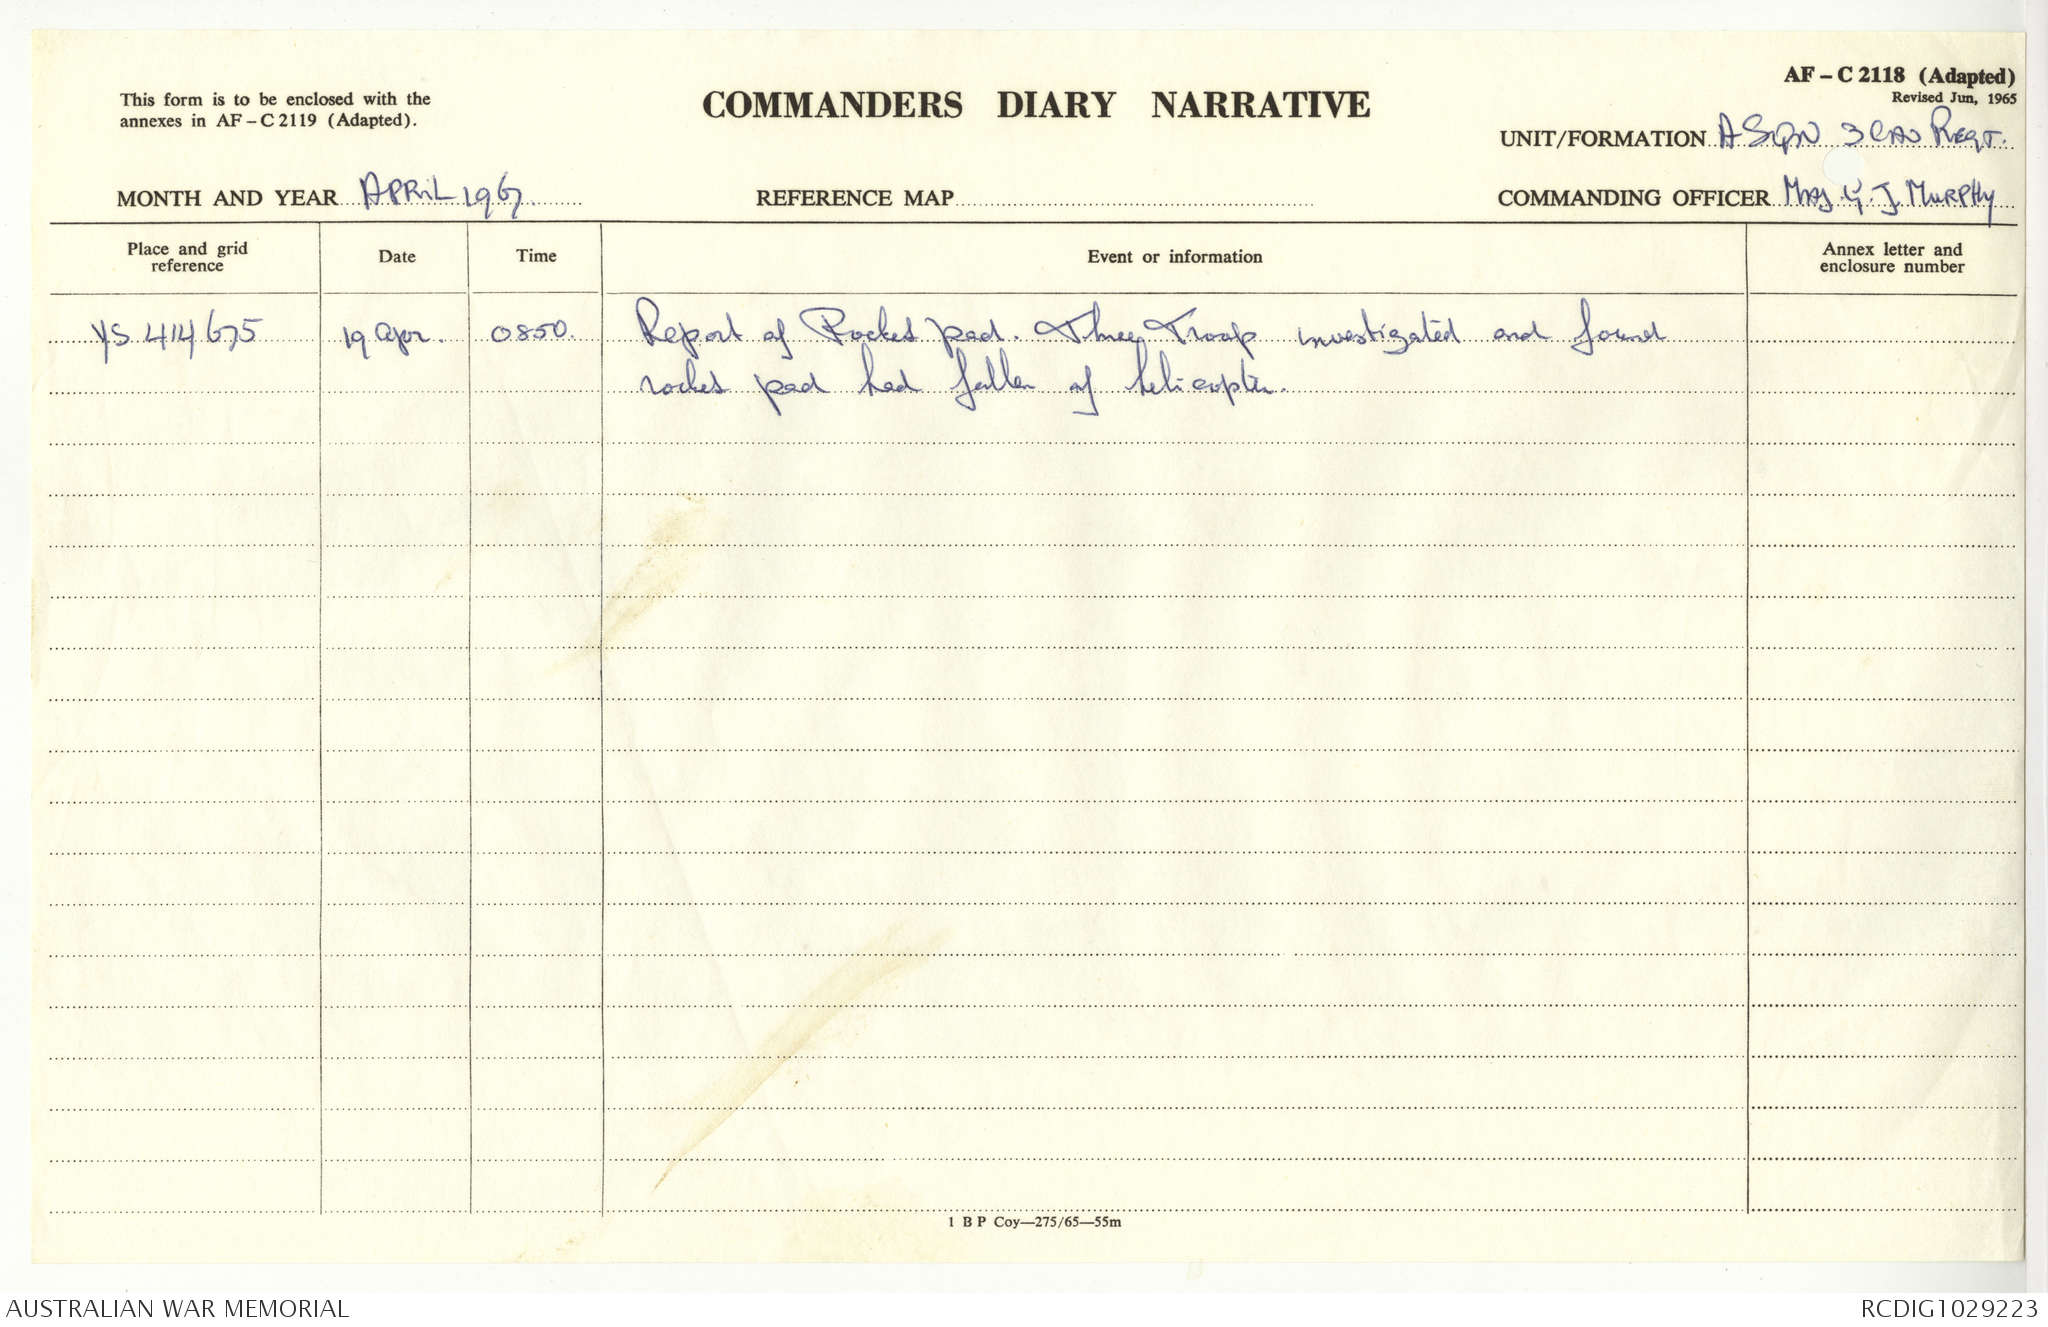 AF – C 2118 (Adapted)
Revised Jun, 1965
This form is to be enclosed with the
annexes in AF – C 2119 (Adapted).
COMMANDERS DIARY NARRATIVE
UNIT/FORMATION A SQN 3 CAV REGT.
MONTH AND YEAR APRIL 1967
REFERENCE MAP
COMMANDING OFFICER MAJ. G. J. MURPHY
Place and grid
reference
Date
Time
Event or information
Annex letter and
enclosure number
YS 414675 19 Apr. 0850. Report of Rocket pod. Three Troop investigated and found
rocket pod had fallen of helicopter.
1 B P Coy—275/65—55m
AUSTRALIAN WAR MEMORIAL
RCDIG1029223